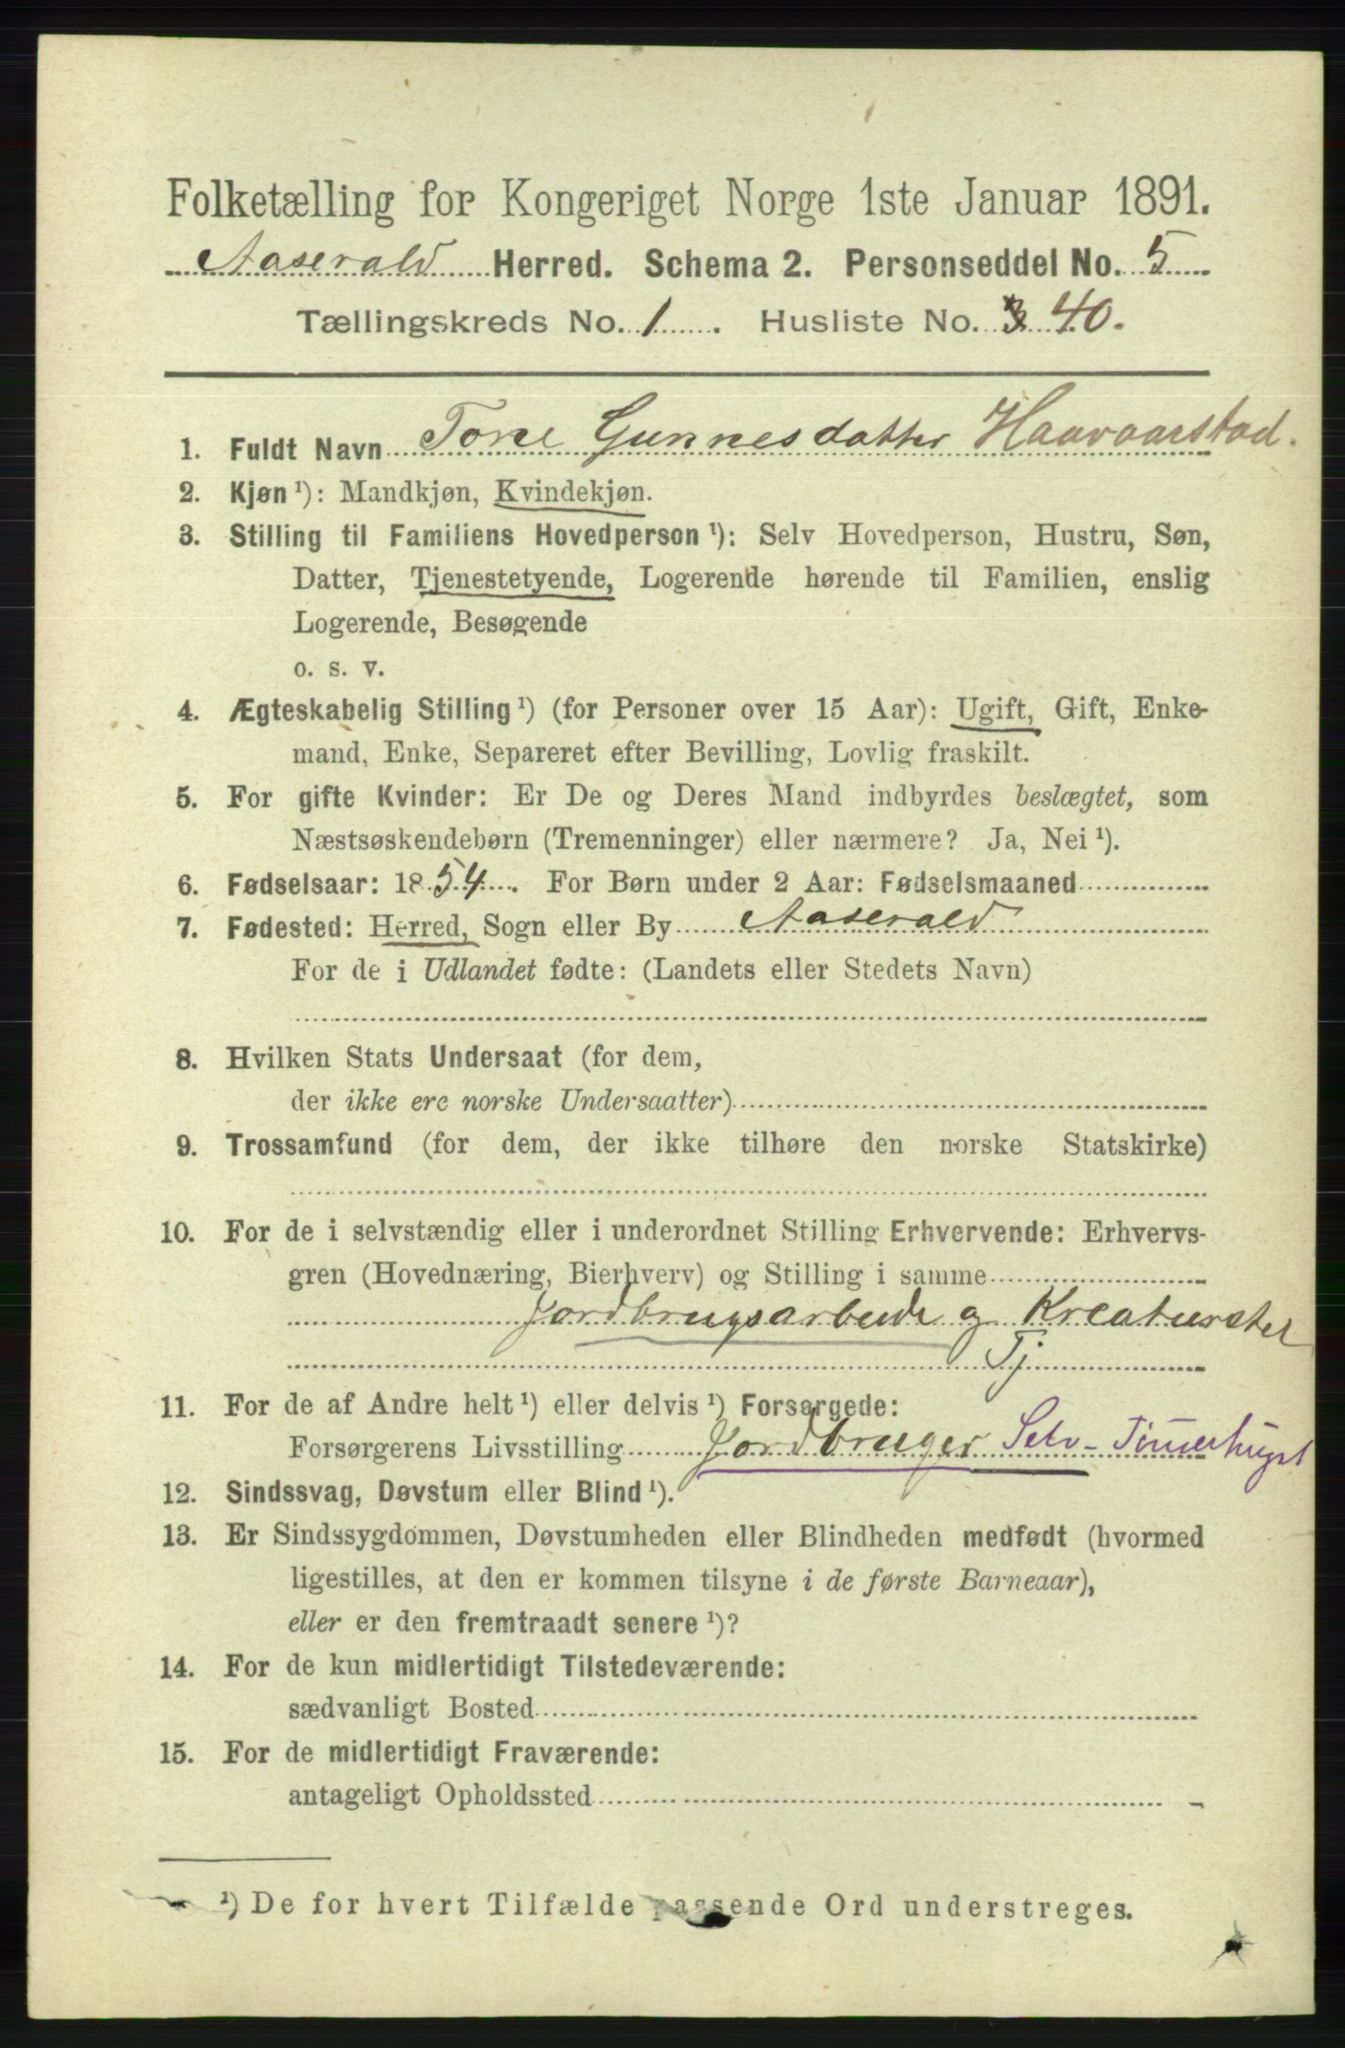 Folketælling for Kongeriget Norge 1ste Januar 1891.
Aaserald Herred. Schema 2. Personseddel No. 5
Tællingskreds No. 1. Husliste No. 3 40.
1. Fuldt Navn Tone Gunnesdatter Haavaarstad.
2. Kjøn ¹): Mandkjøn, Kvindekjøn.
3. Stilling til Familiens Hovedperson ¹): Selv Hovedperson, Hustru, Søn,
Datter, Tjenestetyende, Logerende hørende til Familien, enslig
Logerende, Besøgende
o. s. v.
4. Ægteskabelig Stilling ¹) (for Personer over 15 Aar): Ugift, Gift, Enke-
mand, Enke, Separeret efter Bevilling, Lovlig fraskilt.
5. For gifte Kvinder: Er De og Deres Mand indbyrdes beslægtet, som
Næstsøskendebørn (Tremenninger) eller nærmere? Ja, Nei ¹).
6. Fødselsaar: 1854. For Børn under 2 Aar: Fødselsmaaned
7. Fødested: Herred, Sogn eller By Aaserald
For de i Udlandet fødte: (Landets eller Stedets Navn)
8. Hvilken Stats Undersaat (for dem,
der ikke ere norske Undersaatter)
9. Trossamfund (for dem, der ikke tilhøre den norske Statskirke)
10. For de i selvstændig eller i underordnet Stilling Erhvervende: Erhvervs-
gren (Hovednæring, Bierhverv) og Stilling i samme
Jordbrugsarbeide og Kreaturstel
Tj
11. For de af Andre helt ¹) eller delvis ¹) Forsørgede:
Forsørgerens Livsstilling Jordbruger Selv-
12. Sindssvag, Døvstum eller Blind ¹).
13. Er Sindssygdommen, Døvstumheden eller Blindheden medfødt (hvormed
ligestilles, at den er kommen tilsyne i de første Barneaar),
eller er den fremtraadt senere ¹)?
14. For de kun midlertidigt Tilstedeværende:
sædvanligt Bosted
15. For de midlertidigt Fraværende:
antageligt Opholdssted
¹) De for hvert Tilfælde passende Ord understreges.